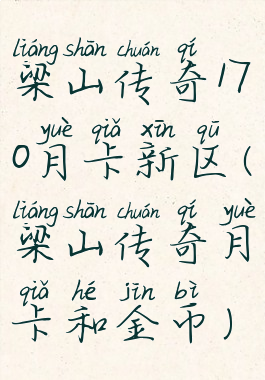 liáng shān chuán qí
梁山传奇17
yuè qiǎ xīn qū
0月卡新区(
liáng shān chuán qí yuè
梁山传奇月
qiǎ hé jīn bì
卡和金币)